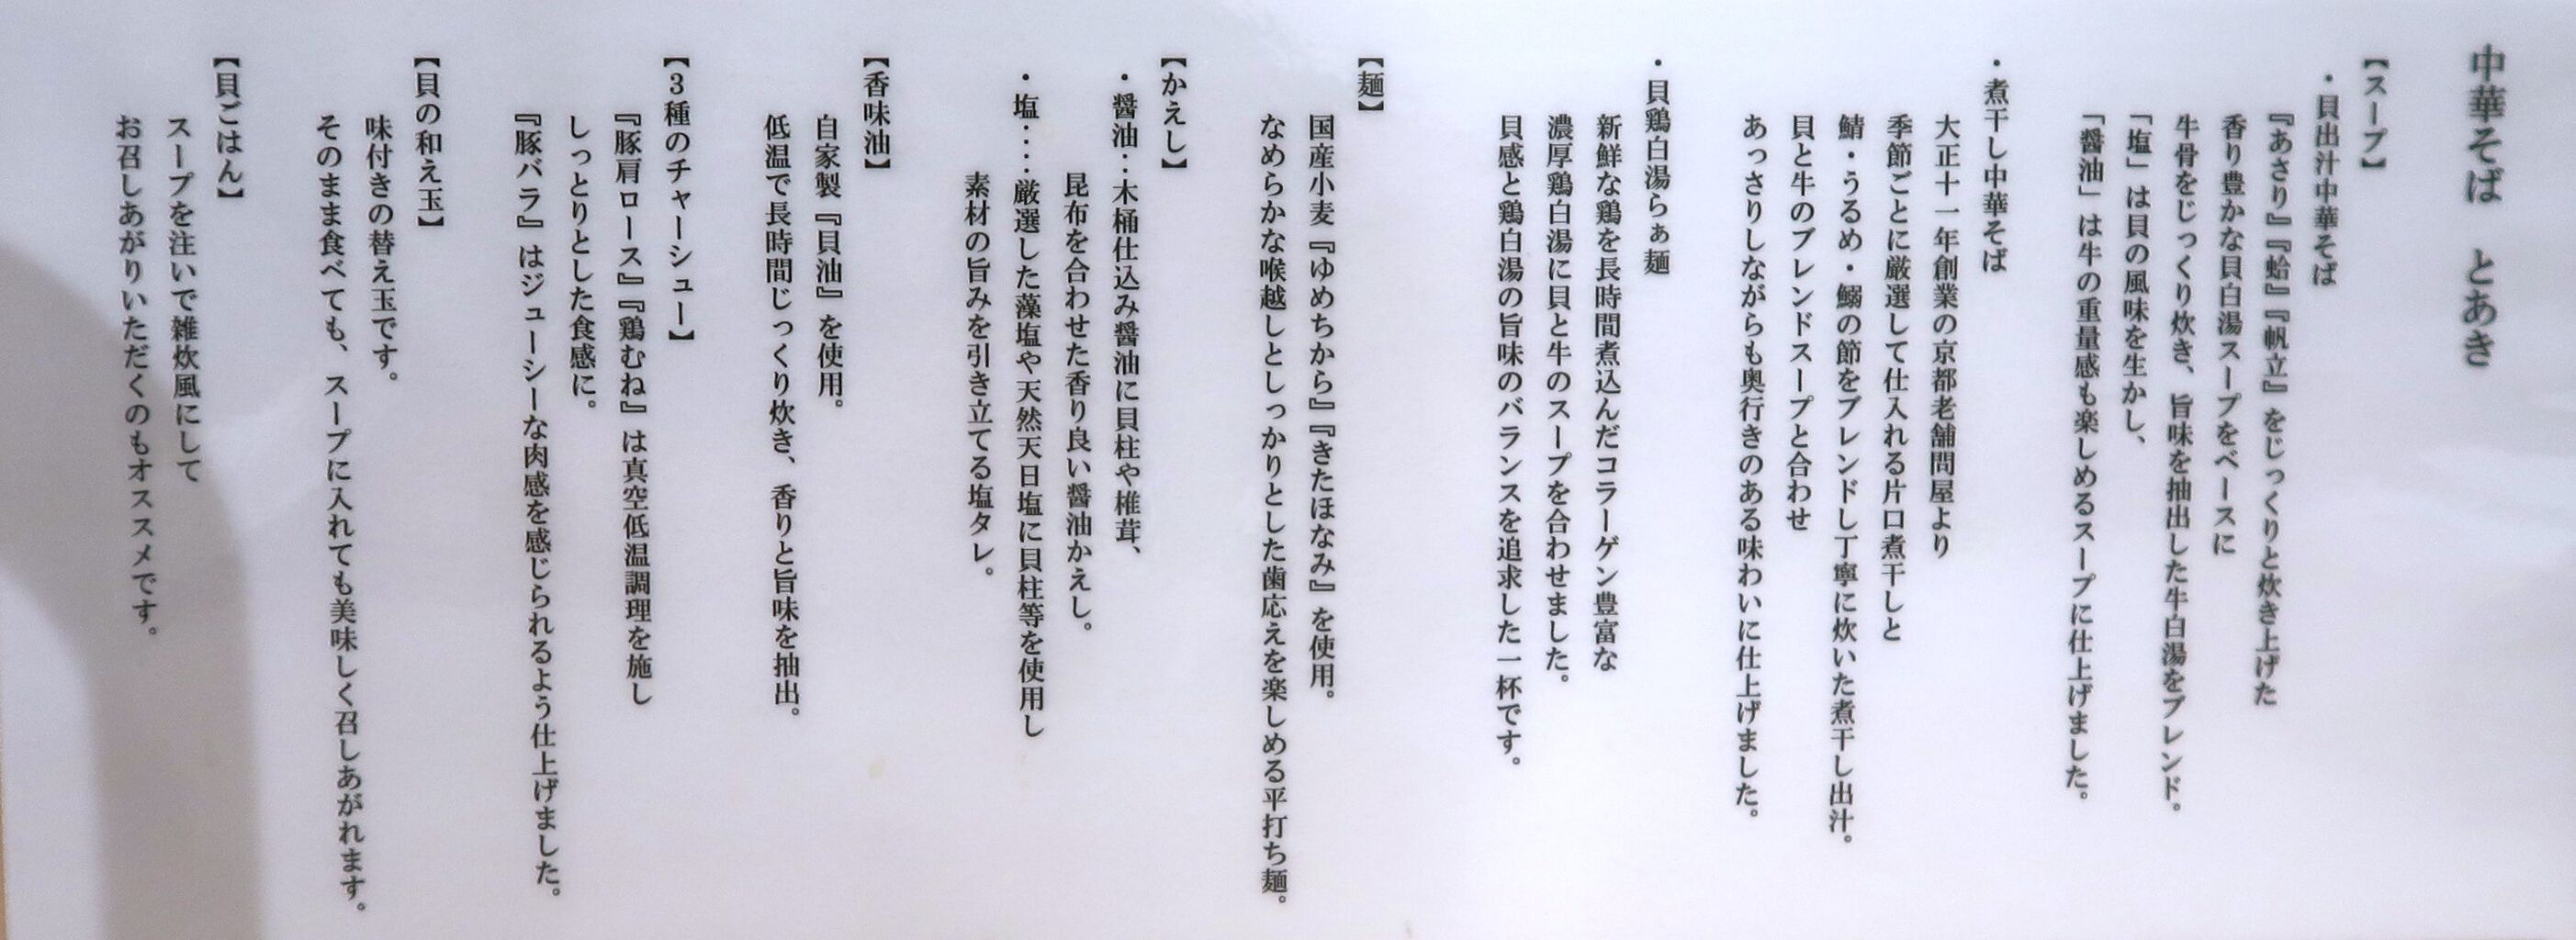 中華そば　とあき
【スープ】
・貝出汁中華そば
『あさり』『蛤』『帆立』をじっくりと炊き上げた
香り豊かな貝白湯スープをベースに
牛骨をじっくり炊き、旨味を抽出した牛白湯をブレンド。
「塩」は貝の風味を生かし、
「醤油」は牛の重量感も楽しめるスープに仕上げました。
・煮干し中華そば
大正十一年創業の京都老舗問屋より
季節ごとに厳選して仕入れる片口煮干しと
鯖・うるめ・鰯の節をブレンドし丁寧に炊いた煮干し出汁。
貝と牛のブレンドスープと合わせ
あっさりしながらも奥行きのある味わいに仕上げました。
・貝鶏白湯らぁ麺
新鮮な鶏を長時間煮込んだコラーゲン豊富な
濃厚鶏白湯に貝と牛のスープを合わせました。
貝感と鶏白湯の旨味のバランスを追求した一杯です。
【麺】
国産小麦『ゆめちから』『きたほなみ』を使用。
なめらかな喉越しとしっかりとした歯応えを楽しめる平打ち麺。
【かえし】
・醤油‥木桶仕込み醤油に貝柱や椎茸、
昆布を合わせた香り良い醤油かえし。
・塩‥‥厳選した藻塩や天然天日塩に貝柱等を使用し
素材の旨みを引き立てる塩タレ。
【香味油】
自家製『貝油』を使用。
低温で長時間じっくり炊き、香りと旨味を抽出。
【3種のチャーシュー】
『豚肩ロース』『鶏むね』は真空低温調理を施し
しっとりとした食感に。
『豚バラ』はジューシーな肉感を感じられるよう仕上げました。
【貝の和え玉】
味付きの替え玉です。
そのまま食べても、スープに入れても美味しく召しあがれます。
【貝ごはん】
スープを注いで雑炊風にして
お召しあがりいただくのもオススメです。